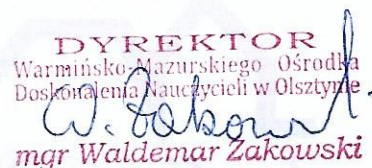 DYREKTOR
Warmińsko-Mazurskiego Ośrodka
Doskonalenia Nauczycieli w Olsztynie
mgr Waldemar Żakowski